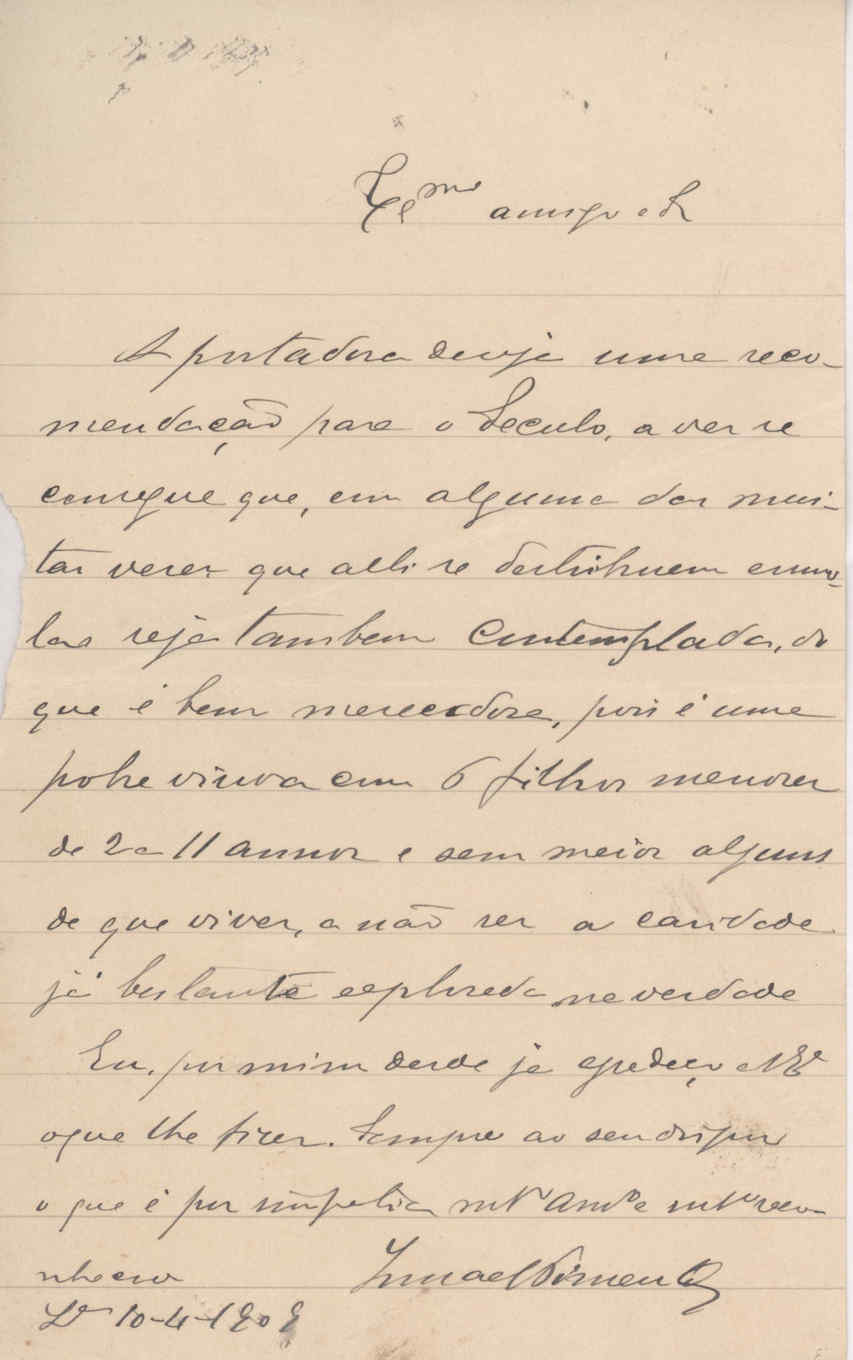 Exmo amigo e Sr
A portadora deseja uma reco-
mendação para o Seculo, a ver se
consegue que, em alguma das mui-
tas vezes que alli se destribuem esmo-
las seja tambem contemplada, do
que é bem merecedora, pois é uma
pobre viuva com 6 filhos menores
de 2 a 11 annos e sem meios alguns
de que viver, a não ser a caridade
já bastante explorada na verdade
Eu, por mim desde já agradeço a V Exª
o que lhe fizer. Sempre ao seu dispor
o que é por simpatia mtº amº e mtº reco-
nhecido Ismael Pimentel
Lª 10-4-190